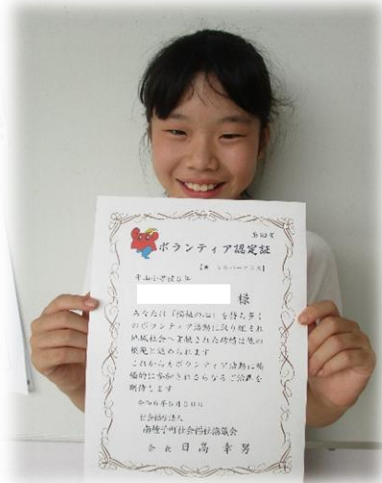 ボランティア認定証
様
あなたは「福祉の心」を持ち多く
のボランティア活動に取り組まれ
地域社会へ貢献された
模範と認められます
これからもボランティア活動に積
極的に参加されさらなるご活躍を
期待します
社会福祉法人
南種子町社会福祉協議会
会長 日高幸男